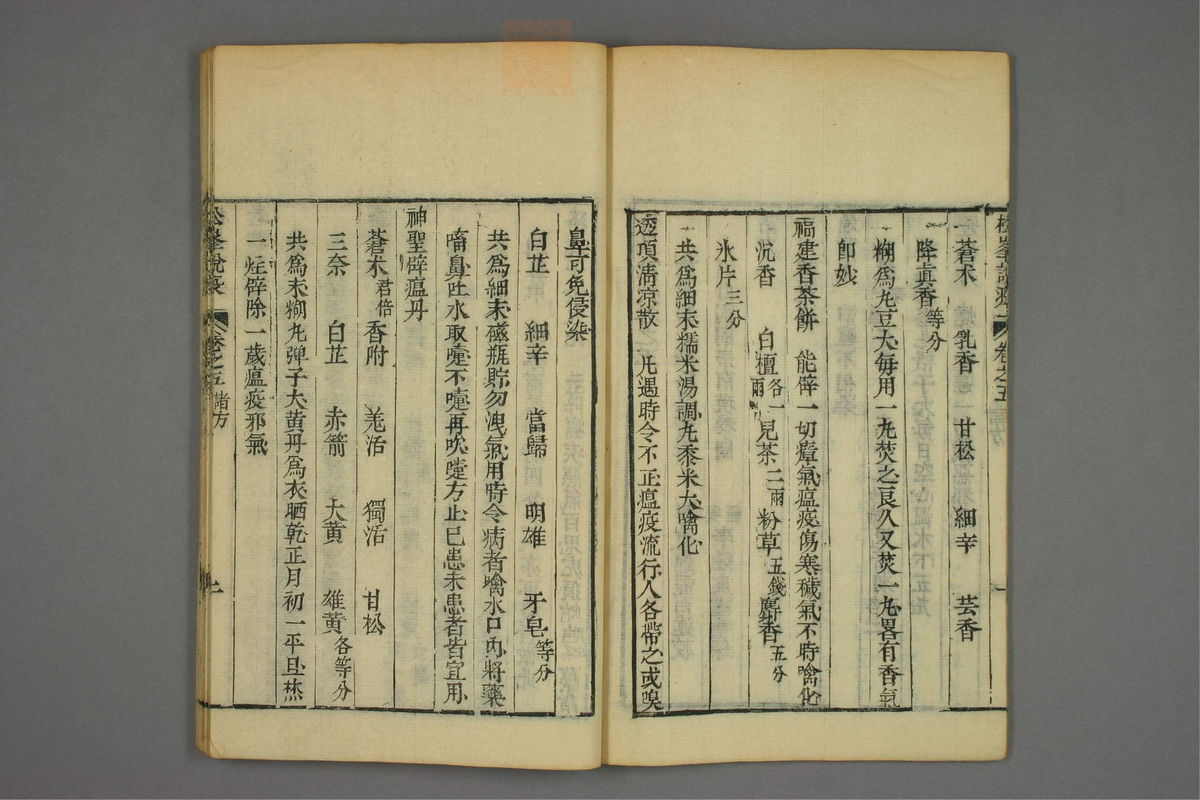 松峯說疫 卷之五
蒼朮 乳香 甘松 細辛 芸香
降眞香等分
糊爲丸豆大每用一丸焚之良久又焚一丸畧有香氣
卽妙
福建香茶餅 能辟一切瘴氣瘟疫傷寒穢氣不時噙化
沉香 白檀各一兩 兒茶二兩 粉草五錢 麝香五分
氷片三分
共爲細末糯米湯調丸黍米大噙化
透項清凉散 凡遇時令不正瘟疫流行人各帶之或嗅
鼻可免侵染
白芷 細辛 當歸 明雄 牙皂等分
共爲細末磁瓶貯勿洩氣用時令病者噙水口內將藥
㗜鼻吐水取嚏不嚏再吹嚏方止已患未患者皆宜用
神聖辟瘟丹
蒼朮君倍 香附 羌活 獨活 甘松
三奈 白芷 赤箭 大黃 雄黃各等分
共爲末糊丸彈子大黃丹爲衣晒乾正月初一平旦焚
一炷辟除一歲瘟疫邪氣
松峯說疫 卷之五 諸方